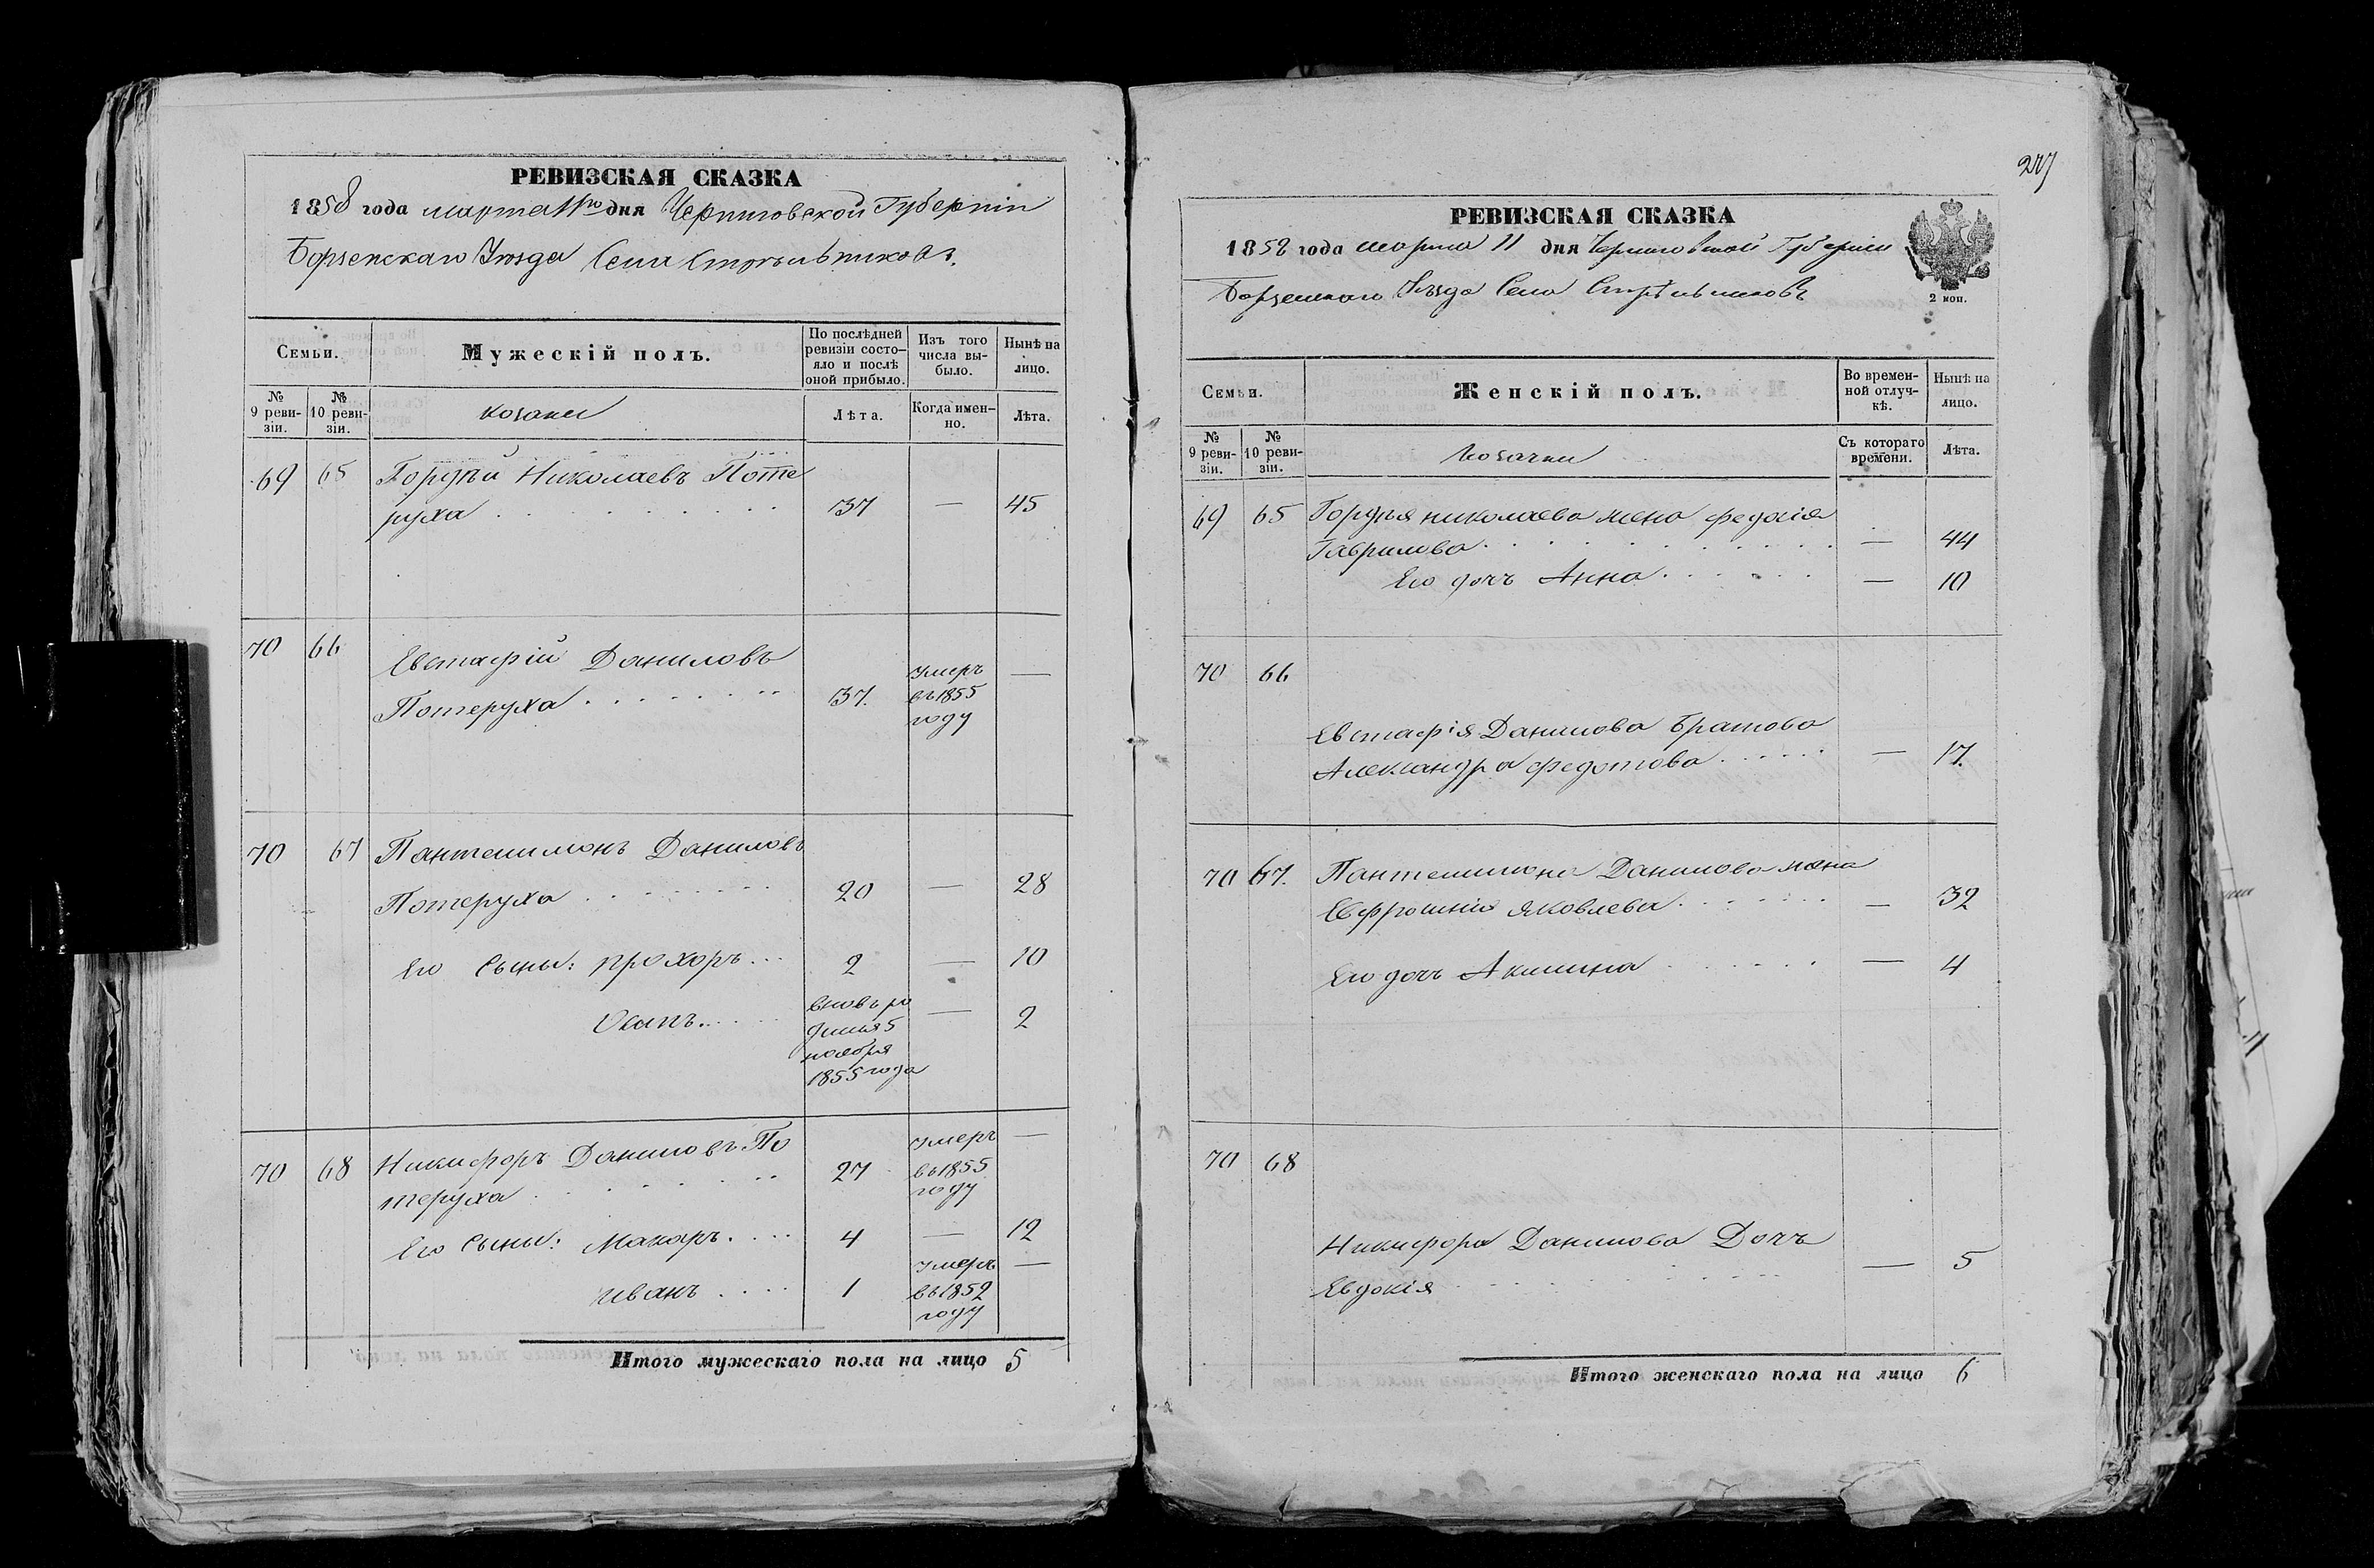 РЕВИЗСКАЯ СКАЗКА
1858 года марта 11го дня Черниговской Губерніи
Борзенскаго Уѣзда Села Стрѣльниковъ.
Семьи.
Мужескій полъ.
По послѣдней ревизіи состо-
яло и послѣ оной прибыло.
Изъ того числа вы-
было.
Нынѣ на лицо.
№ 9 реви-
зіи.
№ 10 реви-
зіи.
козаки
Лѣта.
Когда имен-
но.
Лѣта.
69 65 Гордѣй Николаевъ Поте
руха 37 — 45
70 66 Евстафій Даниловъ
Потеруха 37. умеръ въ 1855 году —
70 67 Пантелимонъ Даниловъ
Потеруха 20 — 28
Его Сыны: Прохоръ 2 — 10
Осипъ вновь ро — 2
5
ноября
1855 года
70 68 Никифоръ Даниловъ По
теруха 27 умеръ въ 1855 году —
Его Сыны: Макаръ 4 — 12
Иванъ 1 умеръ въ 1852 году —
Итого мужескаго пола на лицо 5
РЕВИЗСКАЯ СКАЗКА
1858 года марта 11 дня Черниговской Губерніи
Борзенскаго Уѣзда Села Стрѣльниковъ
2 коп.
Семьи.
Женскій полъ.
Во времен-
ной отлуч-
кѣ.
Нынѣ на лицо.
№ 9 реви-
зіи.
№ 10 реви-
зіи.
Козачки
Съ котораго времени.
Лѣта.
69 65 Гордѣя николаева жена Федосія
Гаврилова — 44
Его дочь Анна — 10
70 66
Евстафія Данилова Братова
Александра Федотова — 17.
70 67. Пантелимона Данилова жена
Евфросинія Яковлева — 32
Его дочь Акилина — 4
70 68
Никифора Данилова Дочь
Евдокія — 5
Итого женскаго пола на лицо 6